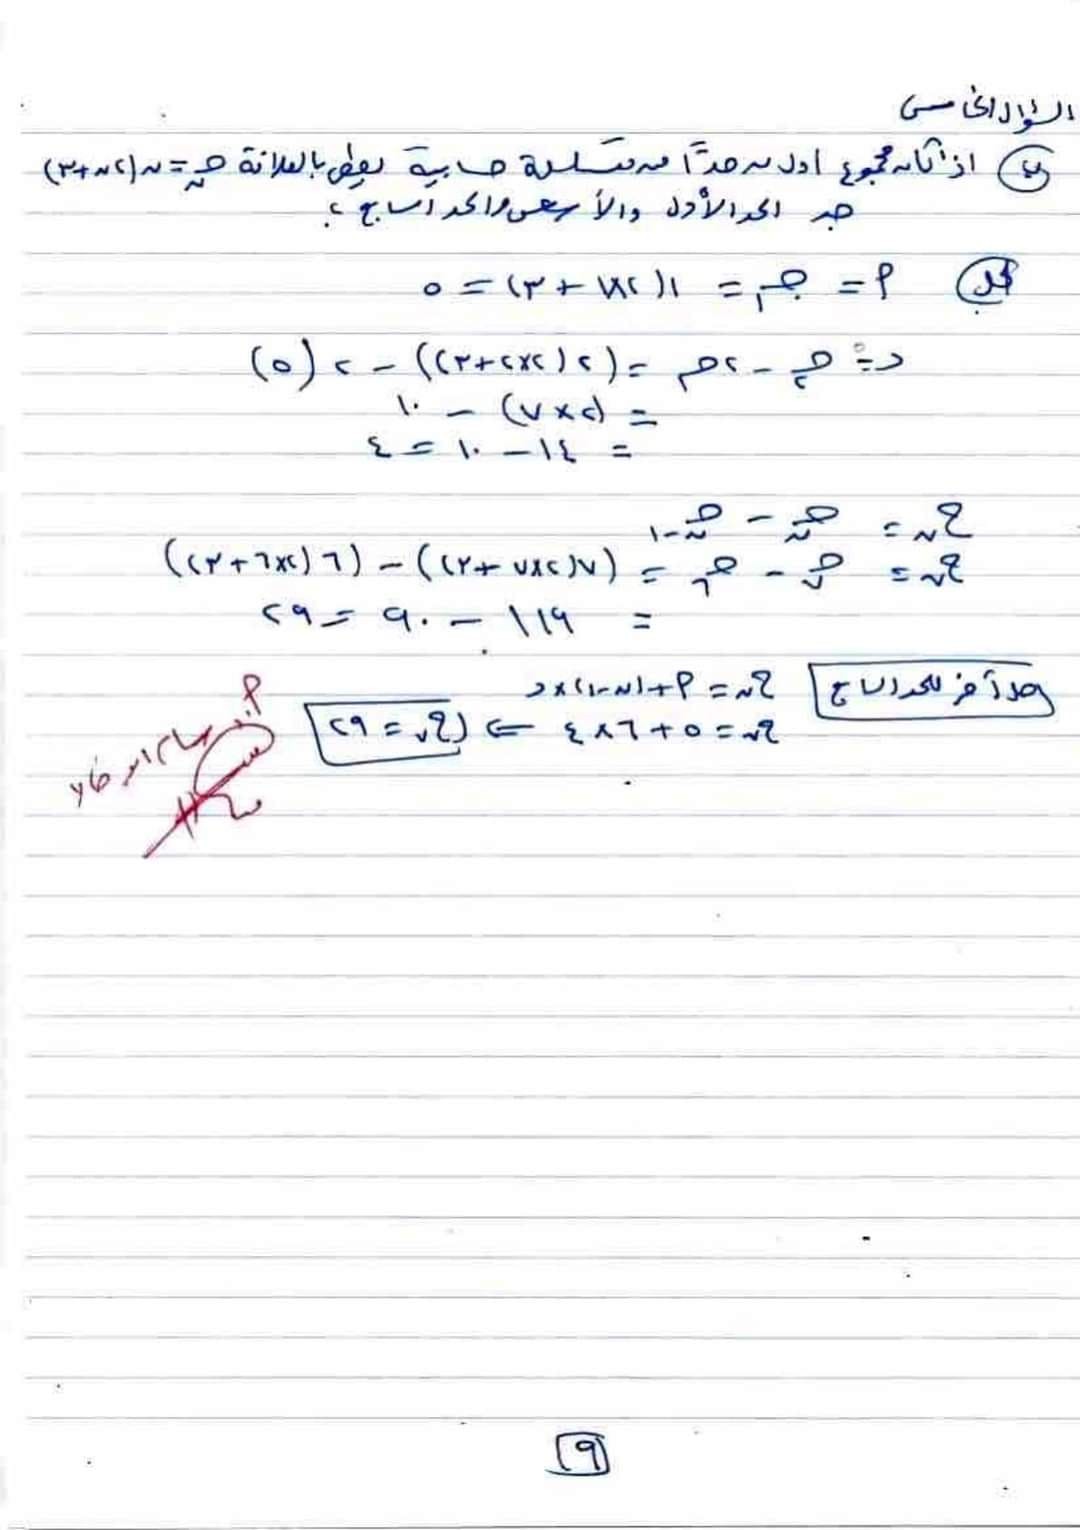 السؤال الخامس
ب) اذا كان مجموع أول ن حداً من متسلسلة حسابية يعطى بالعلاقة جـن = ن(٢ن+٣)
جد الحد الأول والأساس والحد السابع ؟
الحل) P = جـ١ = ١(٢×١ + ٣) = ٥
د = جـ٢ - ٢جـ١ = (٢(٢×٢+٣)) - ٢(٥)
= (٢×٧) - ١٠
= ١٤ - ١٠ = ٤
حن = جـن - جـن-١
ح٧ = جـ٧ - جـ٦ = (٧(٢×٧+٣)) - (٦(٢×٦+٣))
= ١١٩ - ٩٠ = ٢٩
حل آخر للحد السابع حن = P + (ن-١)×د
ح٧ = ٥ + ٦×٤ ⇐ (ح٧ = ٢٩)
٩